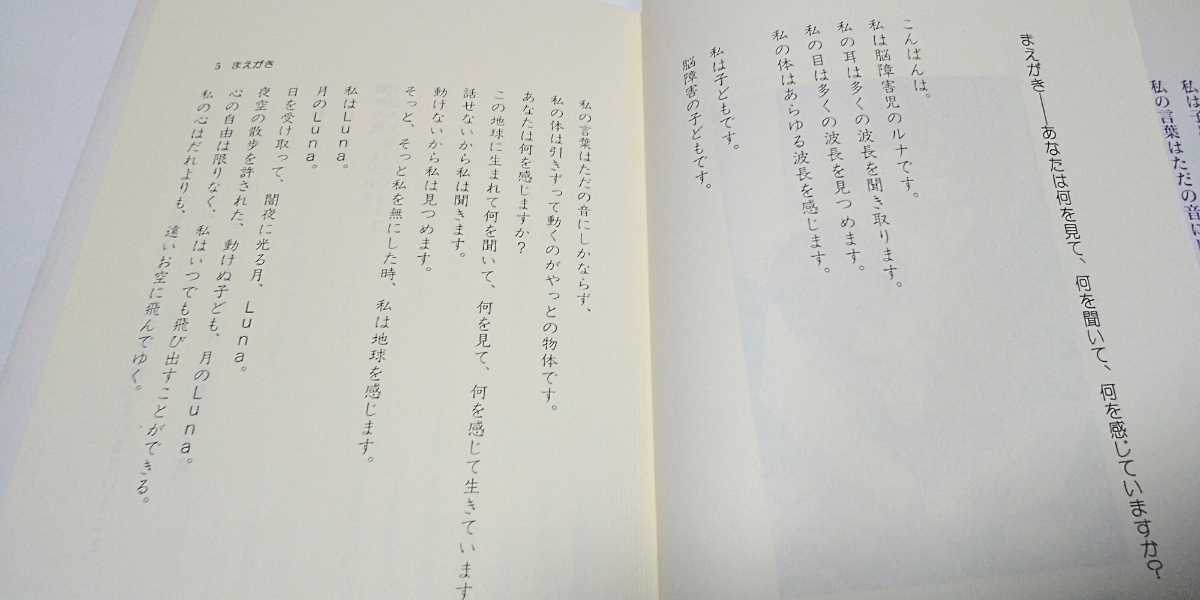 私は子
私の言葉はただの音に
まえがき――あなたは何を見て、何を聞いて、何を感じていますか?
こんばんは。
私は脳障害児のルナです。
私の耳は多くの波長を聞き取ります。
私の目は多くの波長を見つめます。
私の体はあらゆる波長を感じます。
私は子どもです。
脳障害の子どもです。
私の言葉はただの音にしかならず、
私の体は引きずって動くのがやっとの物体です。
あなたは何を感じますか?
この地球に生まれて何を聞いて、何を見て、何を感じて生きています
話せないから私は聞きます。
動けないから私は見つめます。
そっと、そっと私を無にした時、私は地球を感じます。
私はLuna。
月のLuna。
日を受け取って、闇夜に光る月、Luna。
夜空の散歩を許された、動けぬ子ども、月のLuna。
心の自由は限りなく、私はいつでも飛び出すことができる。
私の心はだれよりも、遠いお空に飛んでゆく。
5 まえがき